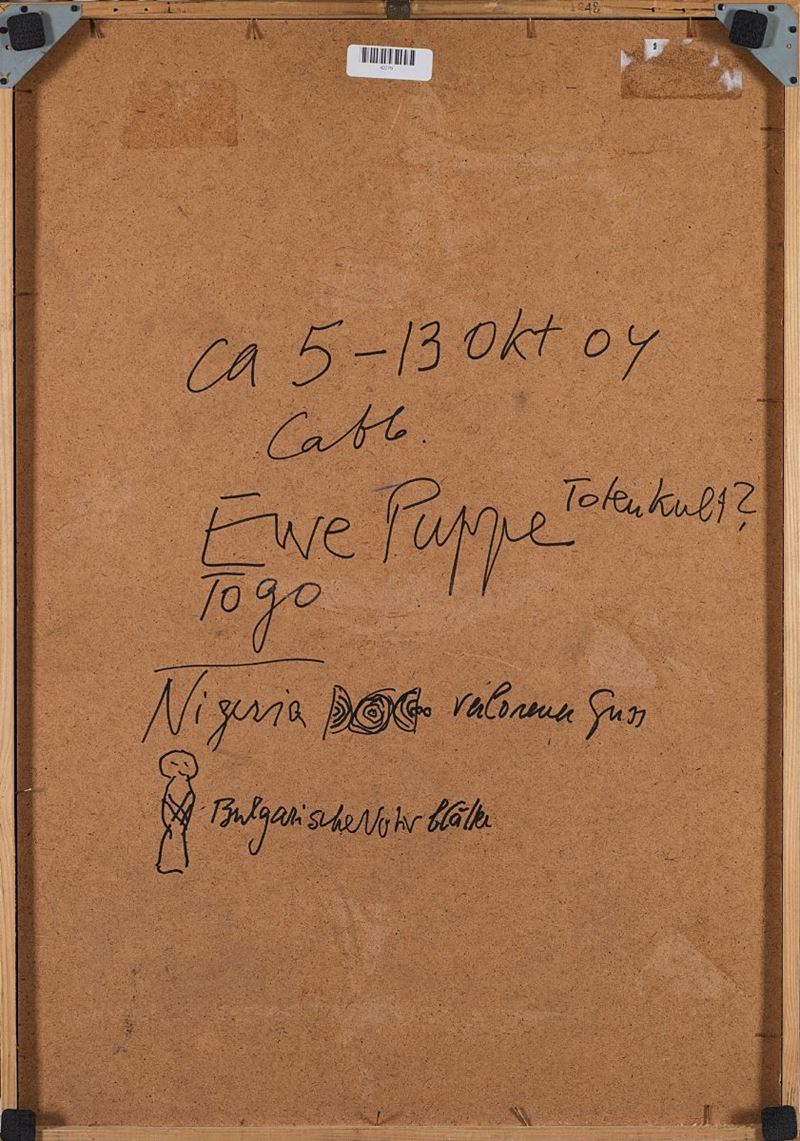 ca 5-13 Okt 04
Cattb.
Ewe Puppe Totenkult?
Togo
Nigeria verlorener Guss
Bulgarische blätter